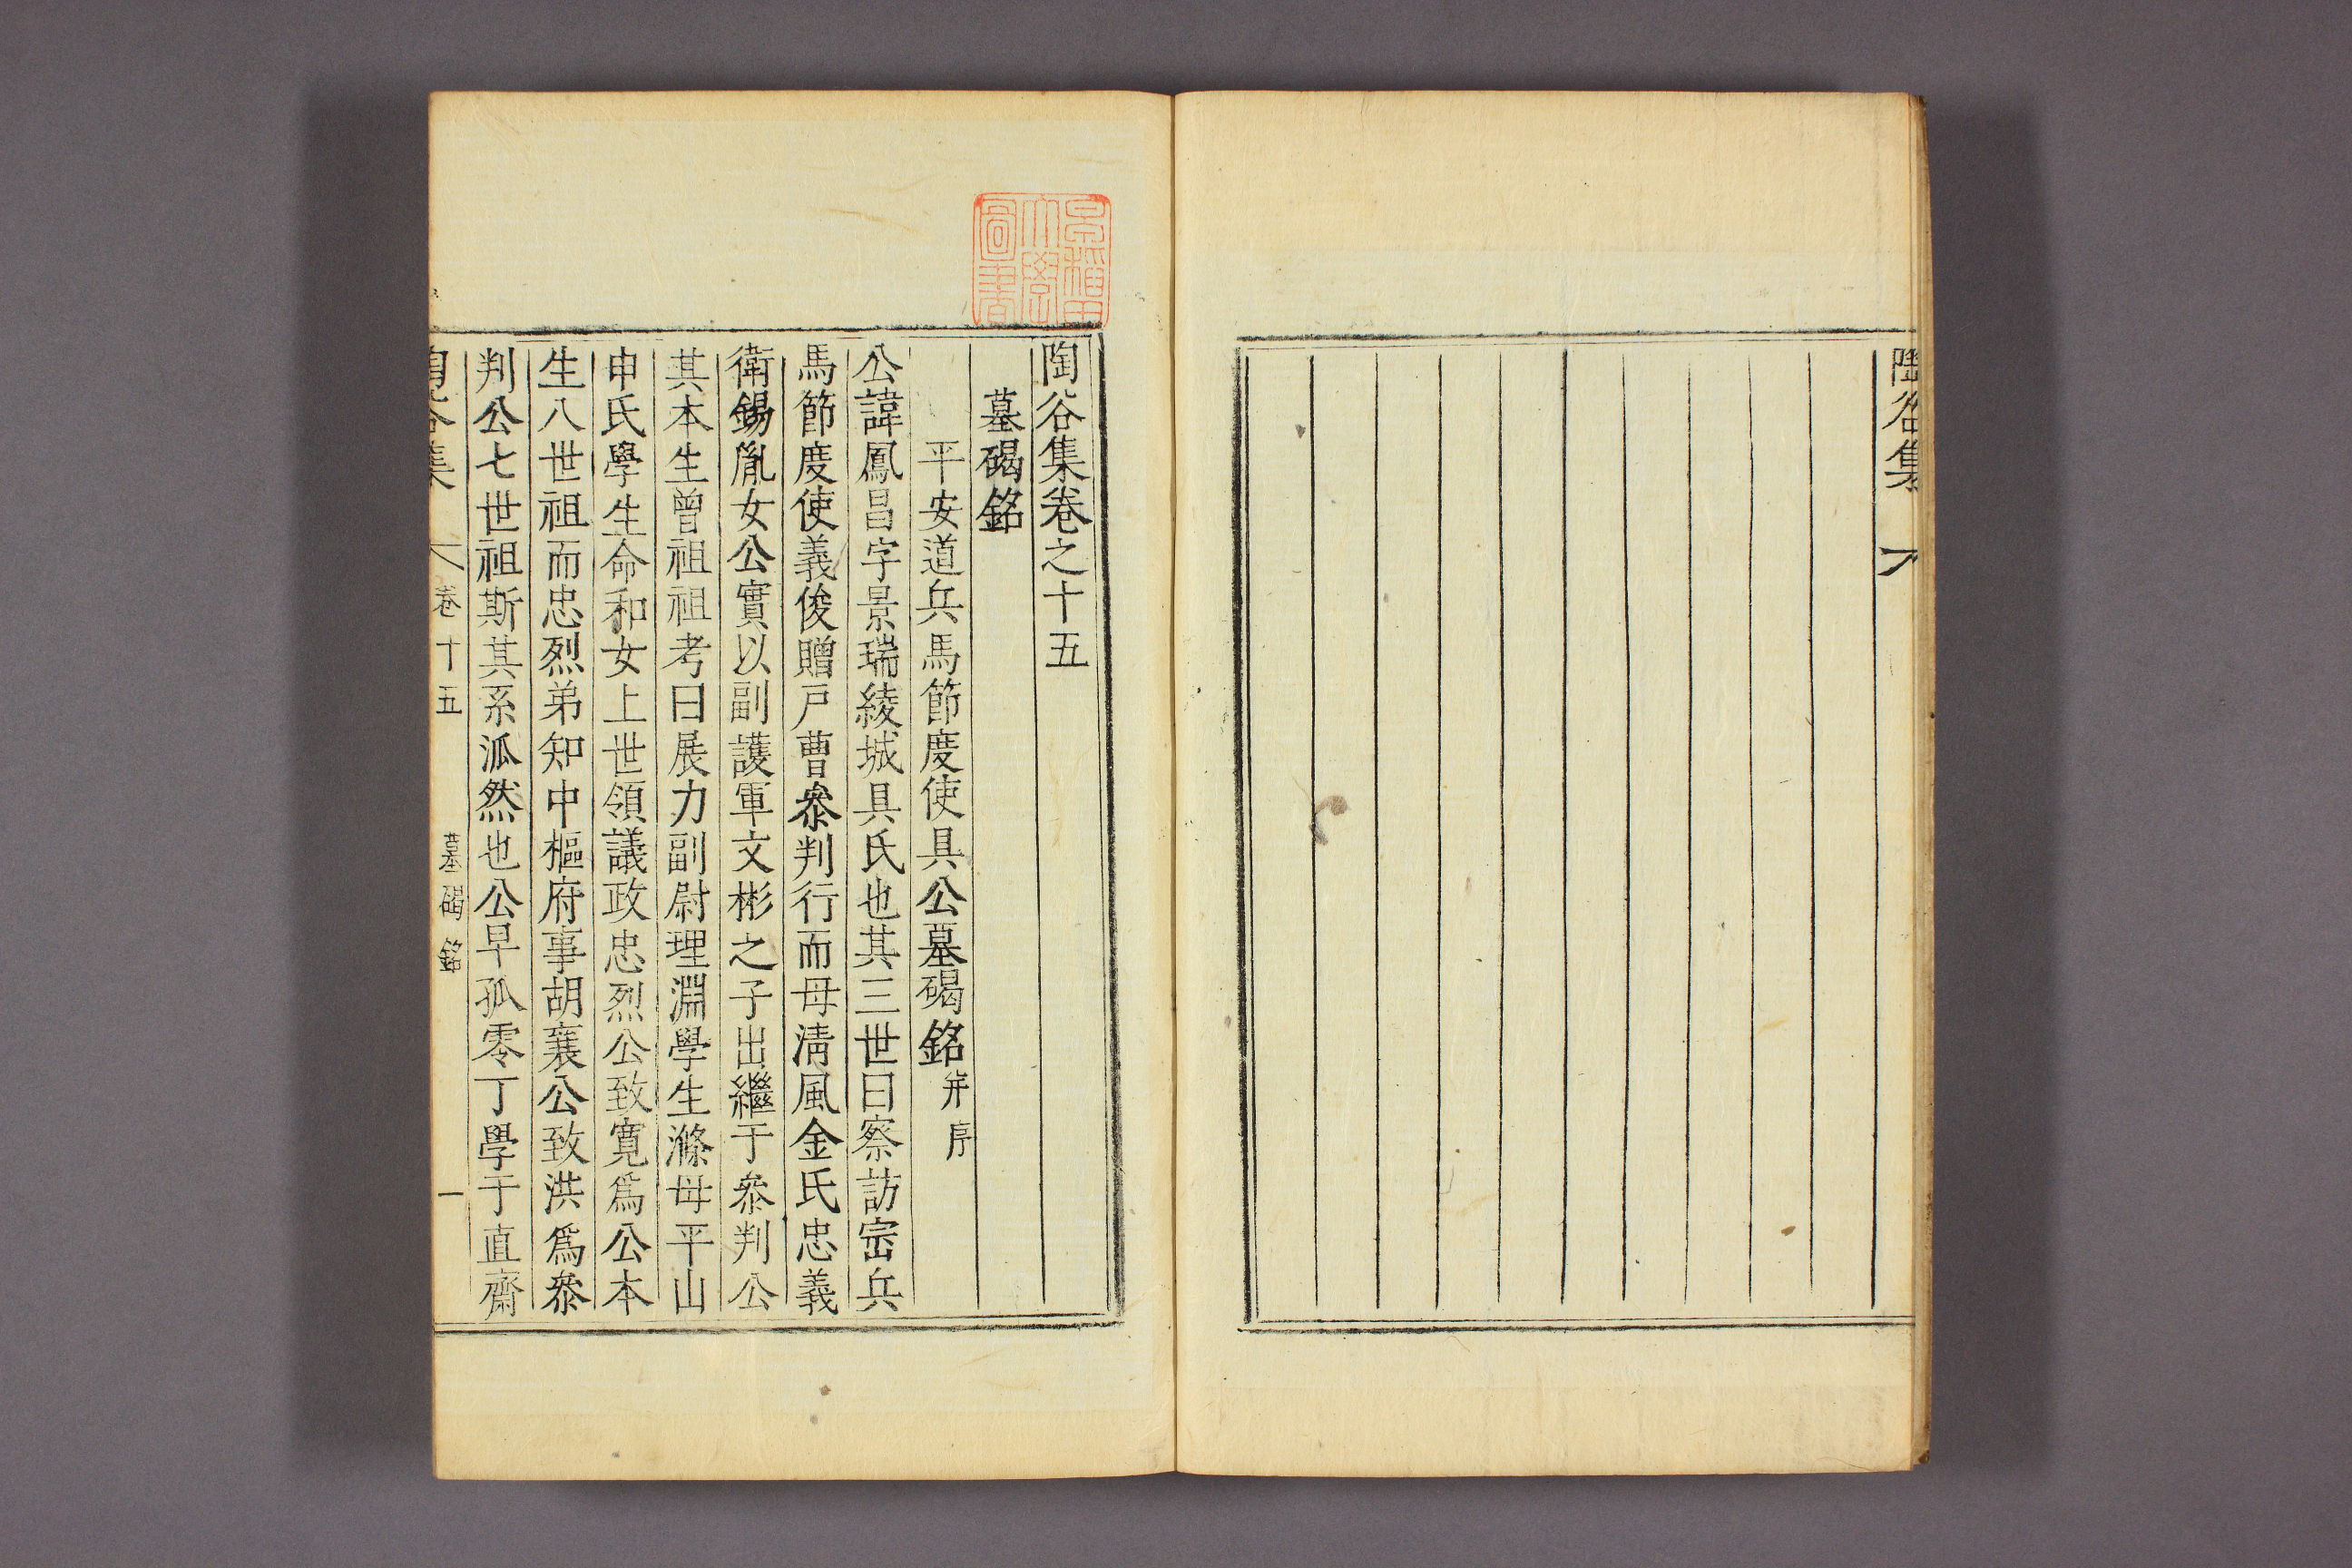 陶谷集
陶谷集卷之十五
墓碣銘
平安道兵馬節度使具公墓碣銘 幷序
公諱鳳昌字景瑞綾城具氏也其三世曰察訪宻兵
馬節度使義俊贈戶曹叅判行而母淸風金氏忠義
衛錫胤女公實以副護軍文彬之子出繼于叅判公
其本生曾祖祖考曰展力副尉理淵學生滌母平山
申氏學生命和女上世領議政忠烈公致寬爲公本
生八世祖而忠烈弟知中樞府事胡襄公致洪爲叅
判公七世祖斯其系泒然也公早孤零丁學于直齋
陶谷集 卷十五 墓碣銘 一
早稻田大學圖書